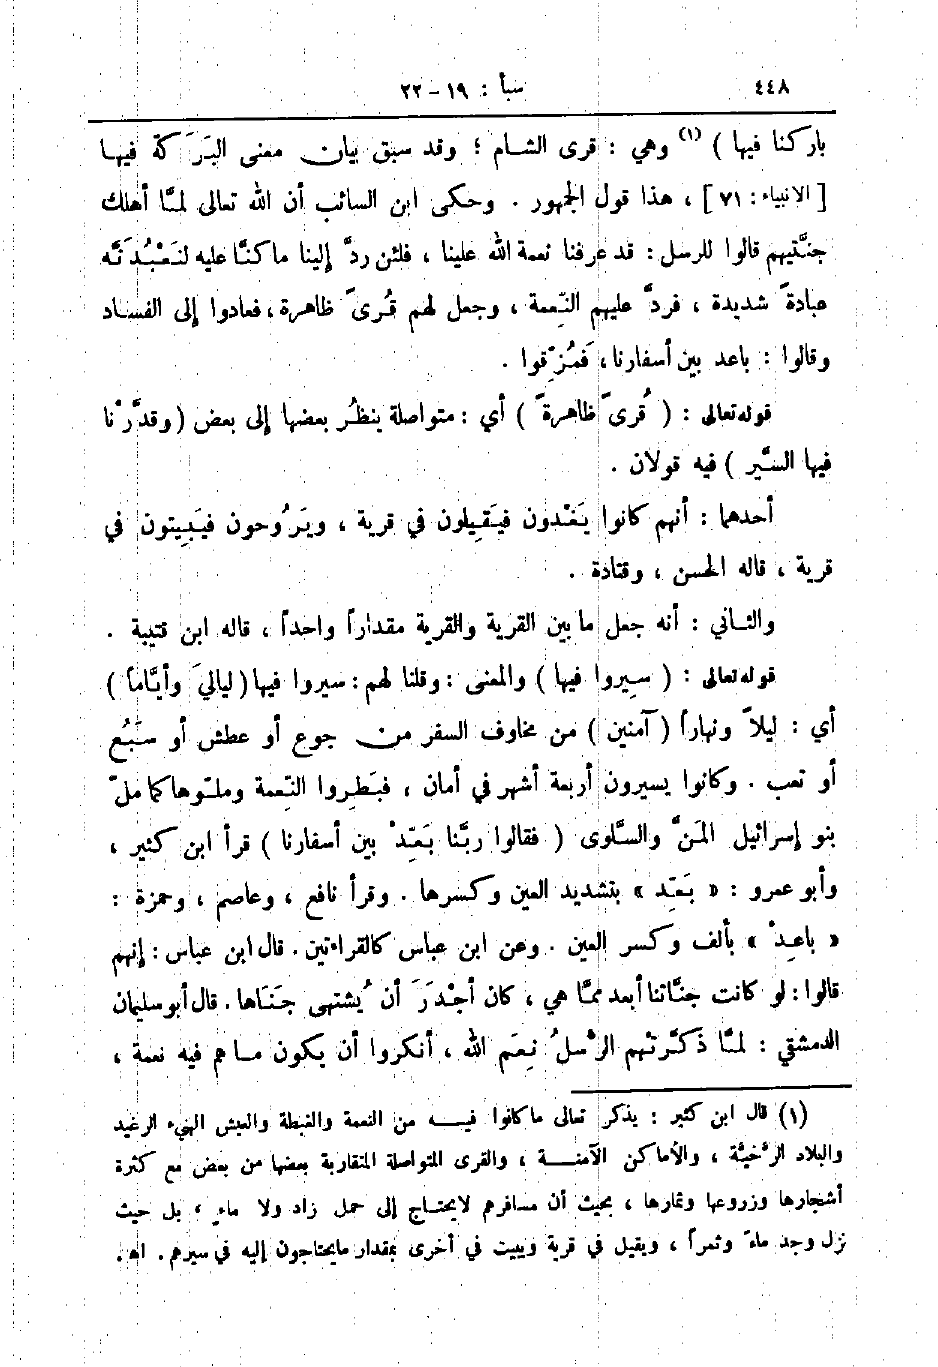 ٤٤٨ سبأ : ١٩ – ٢٢
باركنا فيها ) (١) وهي : قرى الشـام ؛ وقد سبق بيان معنى البَرَكة فيهـا
[ الانبياء : ٧١ ] ، هذا قول الجمهور . وحكى ابن السائب أن الله تعالى لمَّا أهلك
جنَّتيهم قالوا للرسل : قد عرفنا نعمة الله علينا ، فلئن ردَّ إلينا ماكنَّا عليه لنَعْبُدَنَّه
عبادةً شديدة ، فردَّ عليهم النِّعمة ، وجعل لهم قُرىً ظاهرة ، فعادوا إلى الفسـاد
وقالوا : باعد بين أسفارنا ، فَمُزِّقوا .
قوله تعالى : ( قُرىً ظاهرةً ) أي : متواصلة ينظُر بعضها إلى بعض ( وقدَّرْنا
فيها السَّير ) فيه قولان .
أحدهما : أنهم كانوا يَغْدون فيَقِيلون في قرية ، ويَرُوحون فيَبِيتون في
قرية ، قاله الحسن ، وقتادة .
والثـاني : أنه جعل مابين القرية والقرية مقداراً واحداً ، قاله ابن قتيبة .
قوله تعالى : ( سِيروا فيها ) والمعنى : وقلنا لهم : سيروا فيها ( لياليَ وأيَّاماً )
أي : ليلاً ونهاراً ( آمنين ) من مخاوف السفر من جوع أو عطش أو سَبُع
أو تعب . وكانوا يسيرون أربعة أشهر في أمان ، فبَطِروا النِّعمة وملّوهاكما ملّ
بنو إسرائيل المَنَّ والسَّلوى ( فقالوا ربَّنا بَعِّدْ بين أسفارنا ) قرأ ابن كثير ،
وأبو عمرو : « بَعِّد » بتشديد العين وكسرها . وقرأ نافع ، وعاصم ، وحمزة :
« باعِدْ » بألف وكسر العين . وعن ابن عباس كالقراءتين . قال ابن عباس : إنهم
قالوا : لو كانت جنَّاتنا أبعد ممَّا هي ، كان أجْدَرَ أن يُشتهى جَنَاها . قال أبو سليمان
الدمشقي : لمَّا ذَكَّرتْهم الرُّسلُ نِعَم الله ، أنكروا أن يكون مـا هم فيه نعمة ،
(١) قال ابن كثير : يذكر تعالى ماكانوا فيـه من النعمة والغبطة والعيش الهنيء الرغيد
والبلاد الرَّخيَّة ، والأماكن الآمنـة ، والقرى المتواصلة المتقاربة بعضها من بعض مع كثرة
أشجارها وزروعها وثمارها ، بحيث أن مسافرهم لايحتـاج إلى حمل زاد ولا ماءٍ ، بل حيث
نزل وجد ماءً وثمراً ، ويقيل في قرية ويبيت في أخرى بمقدار مايحتاجون إليه في سيرهم . اه .